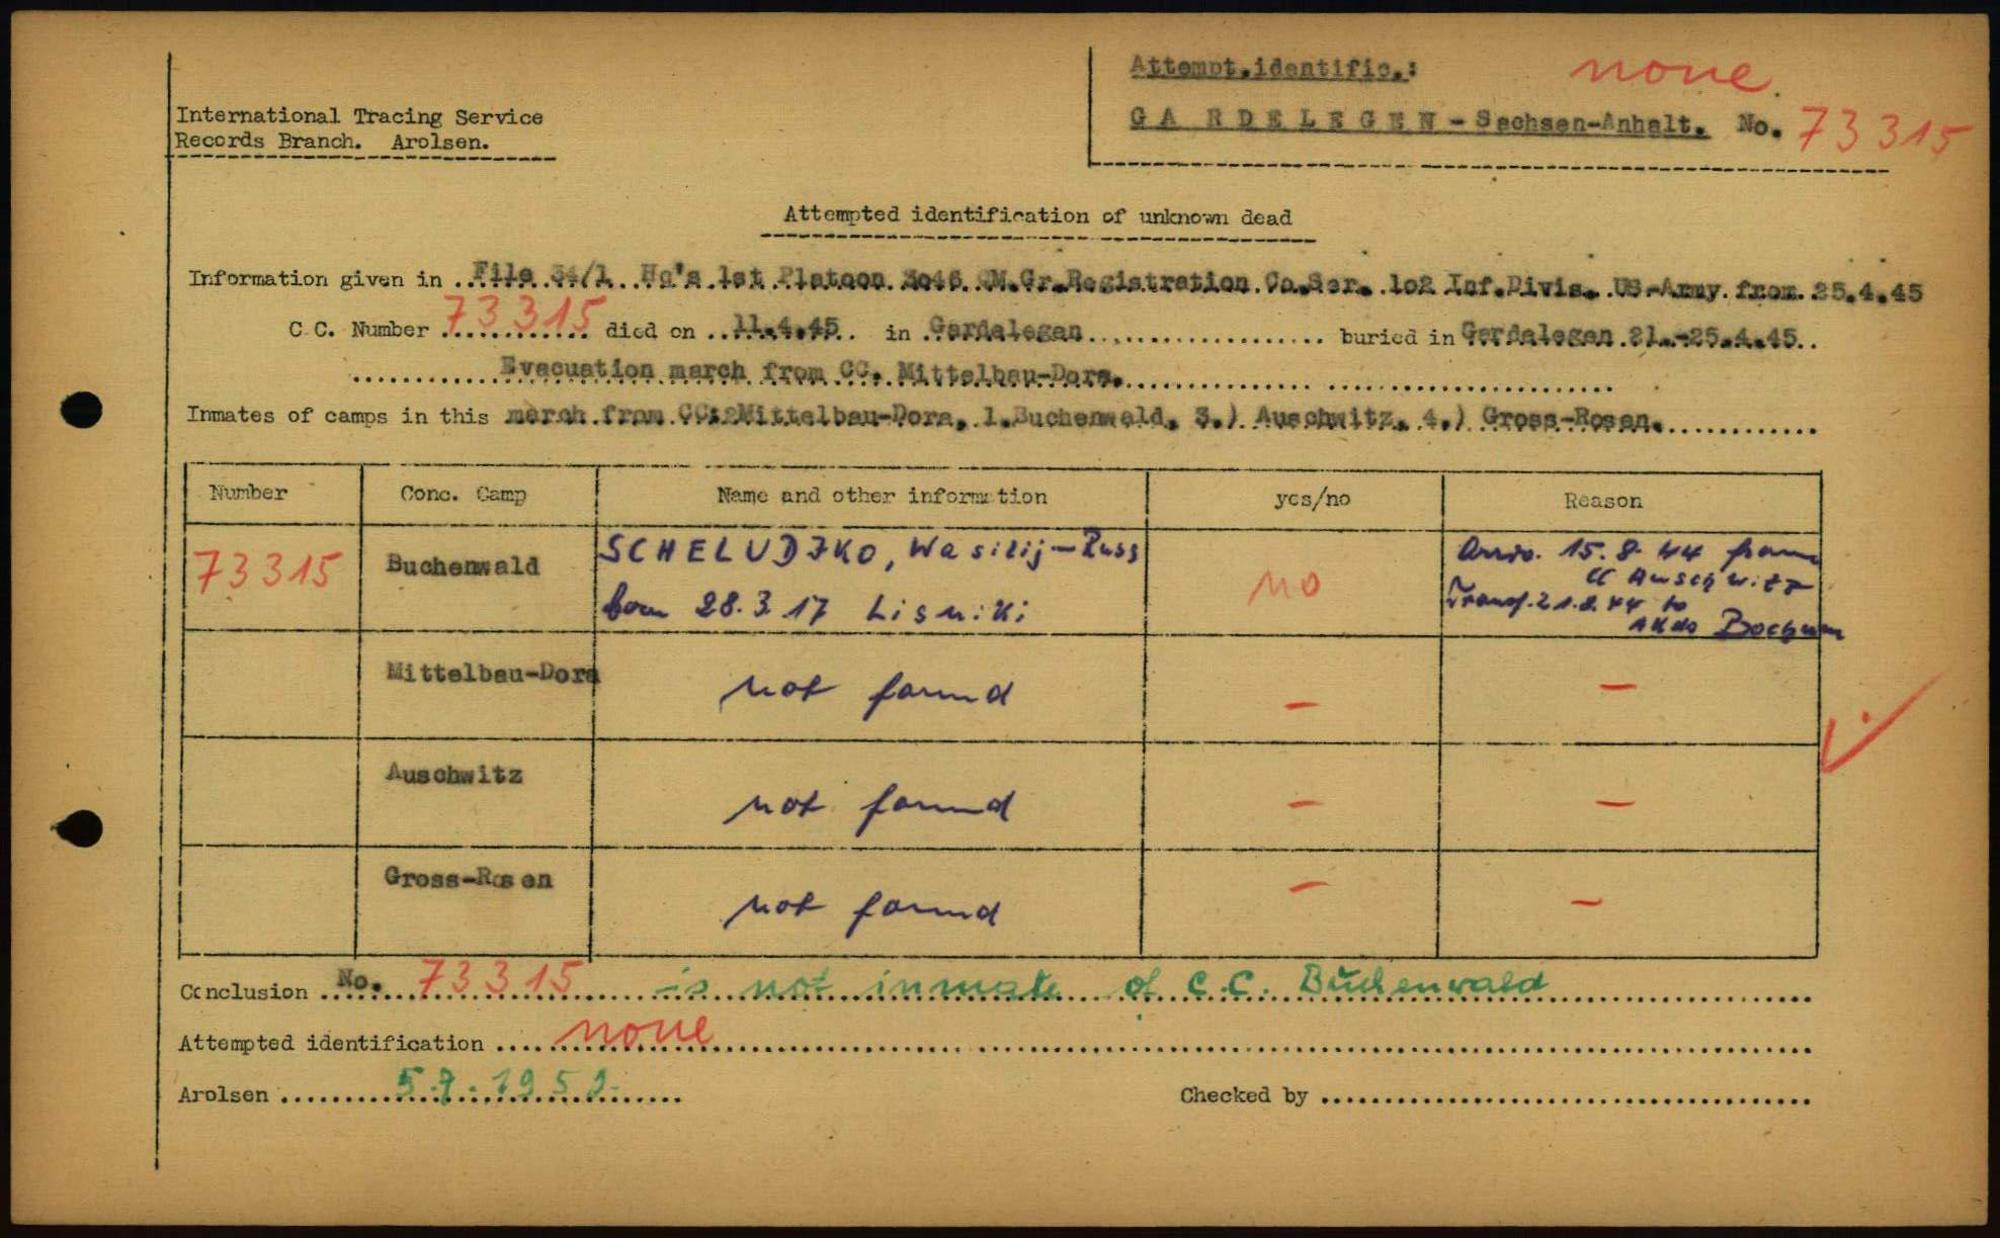 Attempt.identific.: none
International Tracing Service
Records Branch. Arolsen.
GARDELEGEN - Sachsen-Anhalt. No. 73315
Attempted identification of unknown dead
Information given in File 34/1 Hq's 1st Platoon 3046 QM.Gr.Registration Co.Ser. 102 Inf.Divis. US-Army from 25.4.45
C C. Number 73315 died on 11.4.45 in Gardalegan buried in Gardalegen 21.-25.4.45
Evacuation march from CC. Mittelbau-Dora.
Inmates of camps in this march from CC:2Mittelbau-Dora, 1.Buchenwald, 3.) Auschwitz, 4.) Gross-Rosen.
Number Conc. Camp Name and other information yes/no Reason
73315 Buchenwald SCHELUDJKO, Wasilij - Russ no Arriv. 15.8.44 from
CC Auschwitz
born 28.3.17 Lisniki Transf. 21.8.44 to
Akdo Bochum
Mittelbau-Dora not found - -
Auschwitz not found - -
Gross-Rosen not found - -
Conclusion No. 73315 is not inmate of C.C. Buchenwald
Attempted identification none
Arolsen 5.7.1950
Checked by